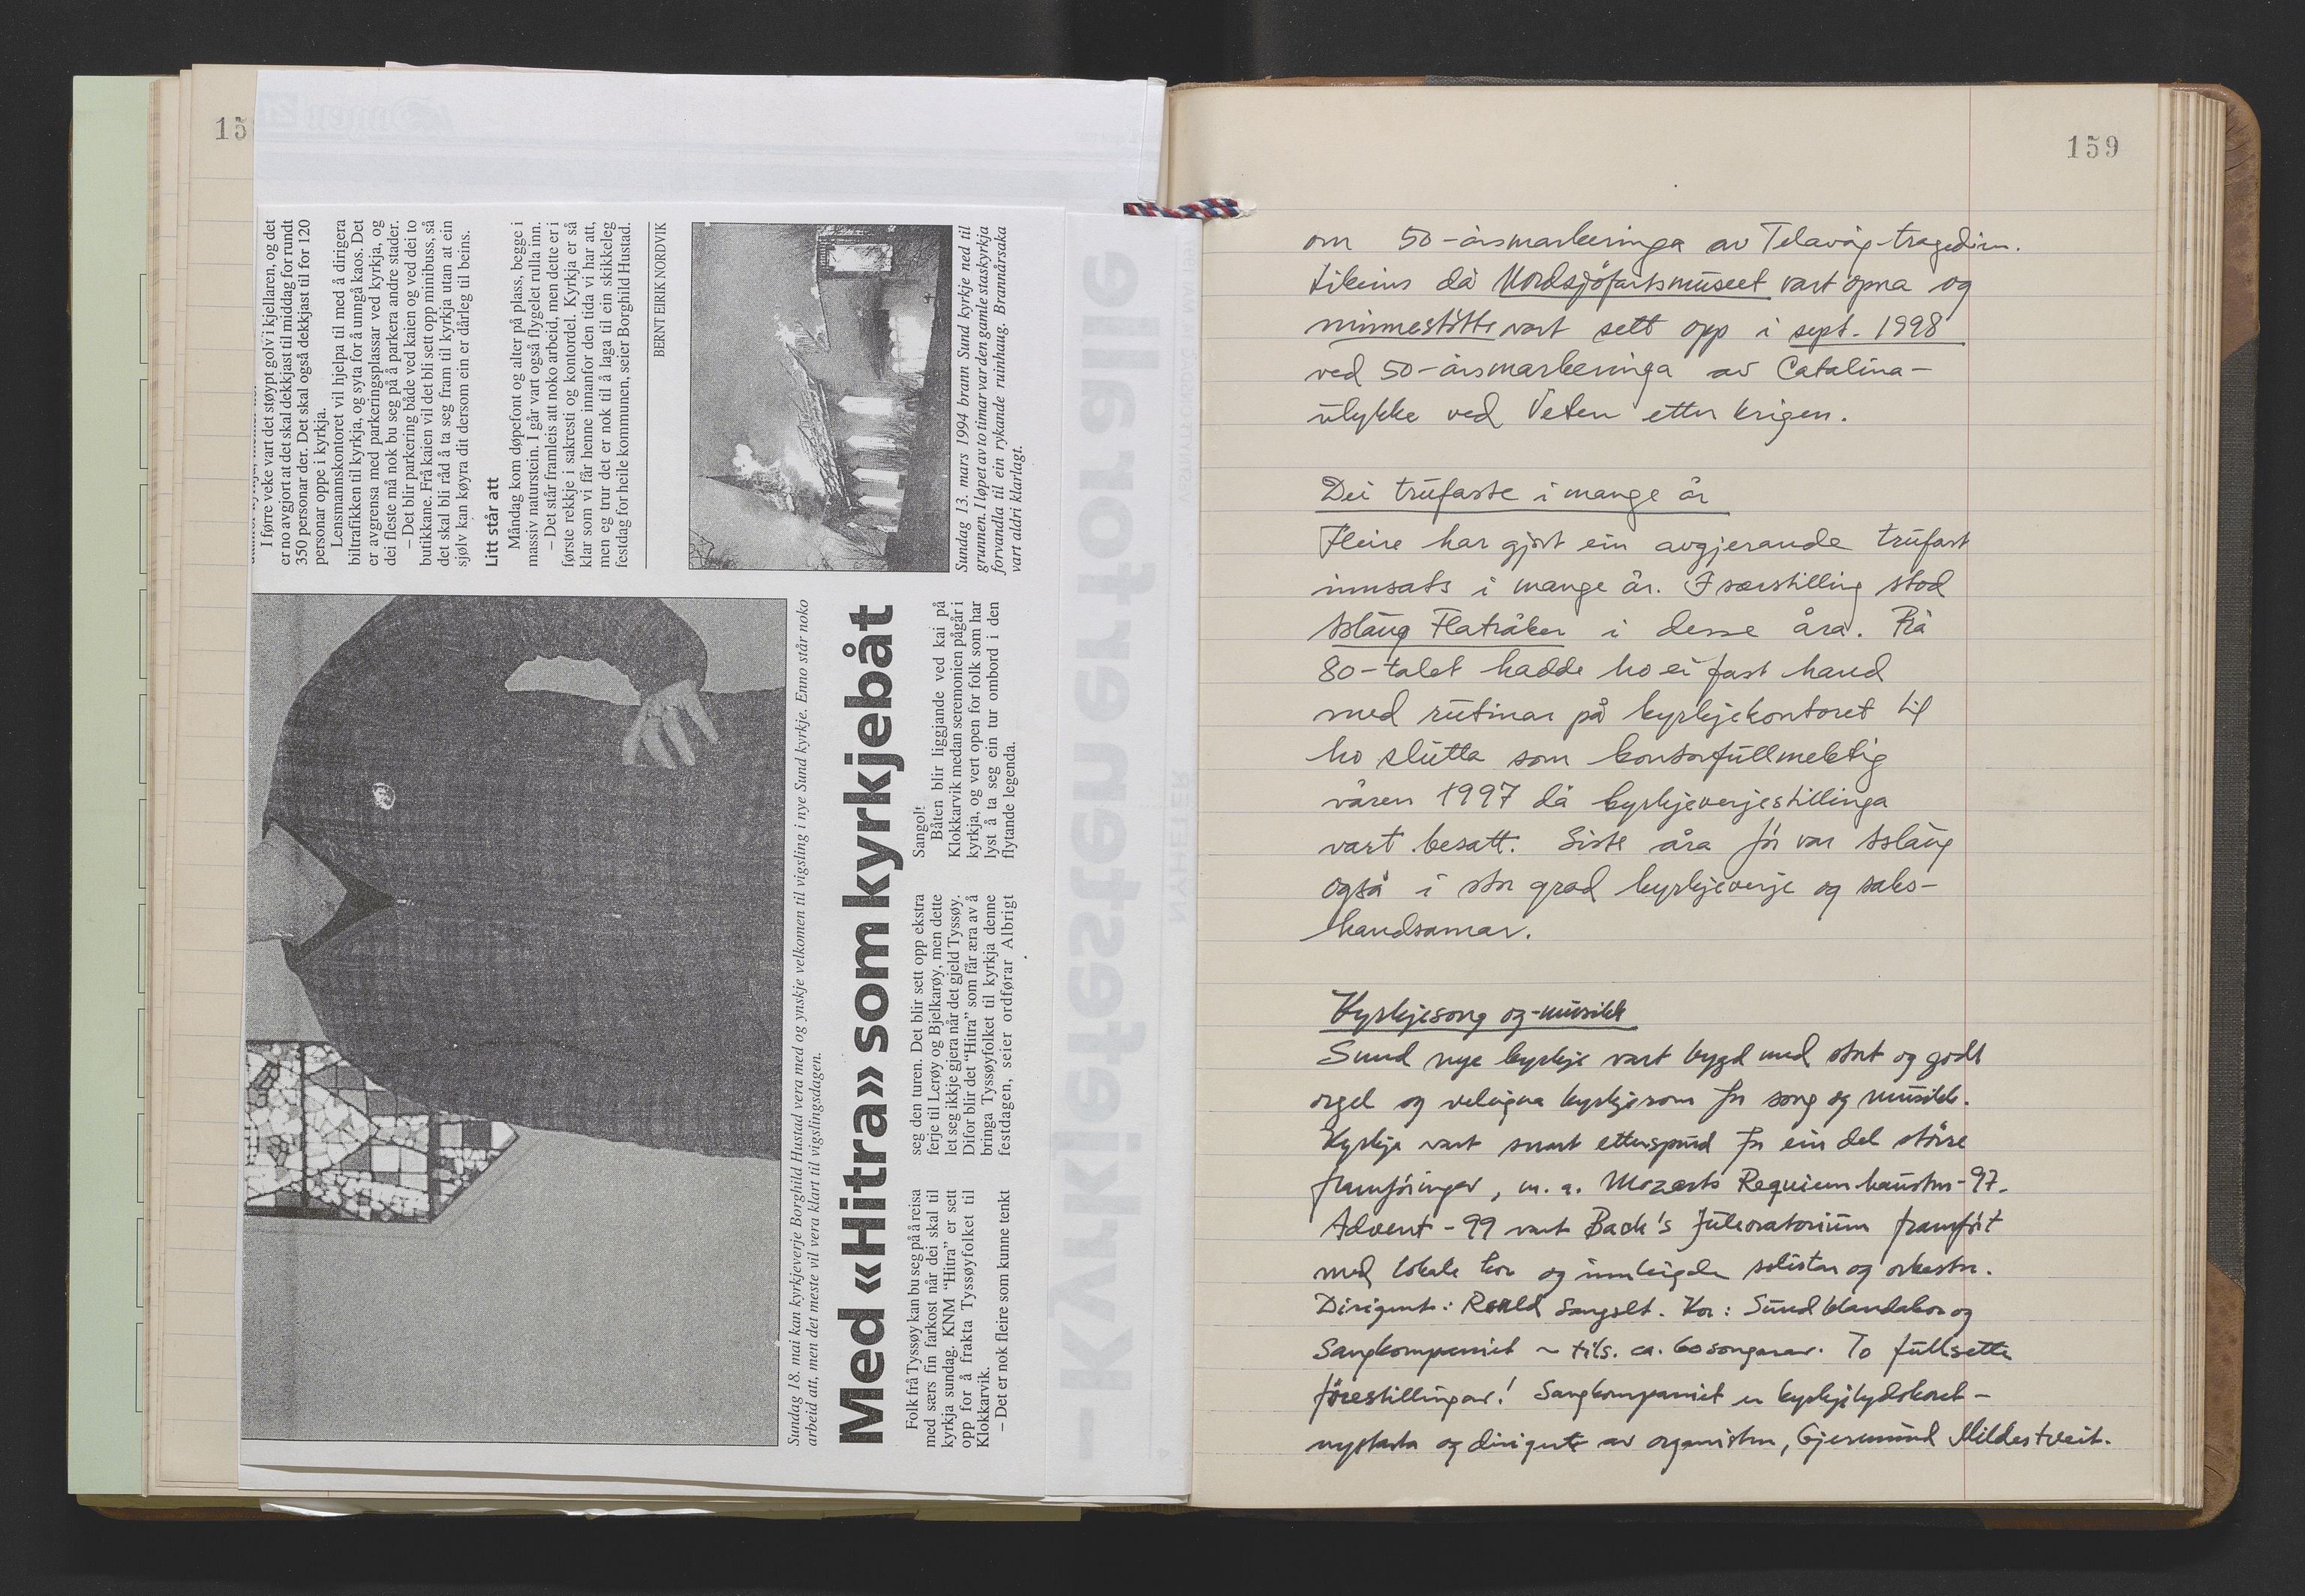 15
I førre veke vart det støypt golv i kjellaren, og det
er no avgjort at det skal dekkjast til middag for rundt
350 personar der. Det skal også dekkjast til for 120
personar oppe i kyrkja.
Lensmannskontoret vil hjelpa til med å dirigera
biltrafikken til kyrkja, og syta for å unngå kaos. Det
er avgrensa med parkeringsplassar ved kyrkja, og
dei fleste må nok bu seg på å parkera andre stader.
– Det blir parkering både ved kaien og ved dei to
butikkane. Frå kaien vil det bli sett opp minibuss, så
det skal bli råd å ta seg fram til kyrkja utan at ein
sjølv kan køyra dit dersom ein er dårleg til beins.
Litt står att
Måndag kom døpefont og alter på plass, begge i
massiv naturstein. I går vart også flygelet rulla inn.
– Det står framleis att noko arbeid, men dette er i
første rekkje i sakresti og kontordel. Kyrkja er så
klar som vi får henne innanfor den tida vi har att,
men eg trur det er nok til å laga til ein skikkeleg
festdag for heile kommunen, seier Borghild Hustad.
BERNT EIRIK NORDVIK
Sundag 13. mars 1994 brann Sund kyrkje ned til
grunnen. I løpet av to timar var den gamle staskyrkja
forvandla til ein rykande ruinhaug. Brannårsaka
vart aldri klarlagt.
Sundag 18. mai kan kyrkjeverje Borghild Hustad vera med og ynskje velkomen til vigsling i nye Sund kyrkje. Enno står noko
arbeid att, men det meste vil vera klart til vigslingsdagen.
Med «Hitra» som kyrkjebåt
Folk frå Tyssøy kan bu seg på å reisa
med særs fin farkost når dei skal til
kyrkja sundag. KNM "Hitra" er sett
opp for å frakta Tyssøyfolket til
Klokkarvik.
– Det er nok fleire som kunne tenkt
seg den turen. Det blir sett opp ekstra
ferje til Lerøy og Bjelkarøy, men dette
let seg ikkje gjera når det gjeld Tyssøy.
Difor blir det "Hitra" som får æra av å
bringa Tyssøyfolket til kyrkja denne
festdagen, seier ordførar Albrigt
Sangolt.
Båten blir liggjande ved kai på
Klokkarvik medan seremonien pågår i
kyrkja, og vert open for folk som har
lyst å ta seg ein tur ombord i den
flytande legenda.
– Kyrkjefesten er for alle
NYHETER
159
om 50-årsmarkeringa av Telavåg-tragedien.
Likeins då Nordsjöfartsmuseet vart opna og
minnestötte vart sett opp i sept. 1998
ved 50-årsmarkeringa av Catalina-
ulykke ved Veten etter krigen.
Dei trufaste i mange år
Fleire har gjort ein avgjerande trufast
innsats i mange år. I særstilling stod
Aslaug Flatråker i desse åra. Frå
80-talet hadde ho ei fast hand
med rutinar på kyrkjekontoret til
ho slutta som kontorfullmektig
våren 1997 då kyrkjeverjestillinga
vart besatt. Siste åra för var Aslaug
også i stor grad kyrkjeverje og saks-
handsamar.
Kyrkjesong og -musikk
Sund nye kyrkje vart bygd med stort og godt
orgel og veleigna kyrkjerom for song og musikk.
Kyrkja vart snart etterspurd for ein del större
framföringar, m.a. Mozarts Requiem hausten -97.
Advent -99 vart Bach's Juleoratorium framfört
med lokale kor og innleigde solistar og orkester.
Dirigent: Roald Sangolt. Kor: Sund blandakor og
Sangkompaniet ~ tils. ca. 60 songarar. To fullsette
förestillingar! Sangkompaniet er kyrkjelydskoret –
nystarta og dirigert av organisten, Gjermund Mildestveit.